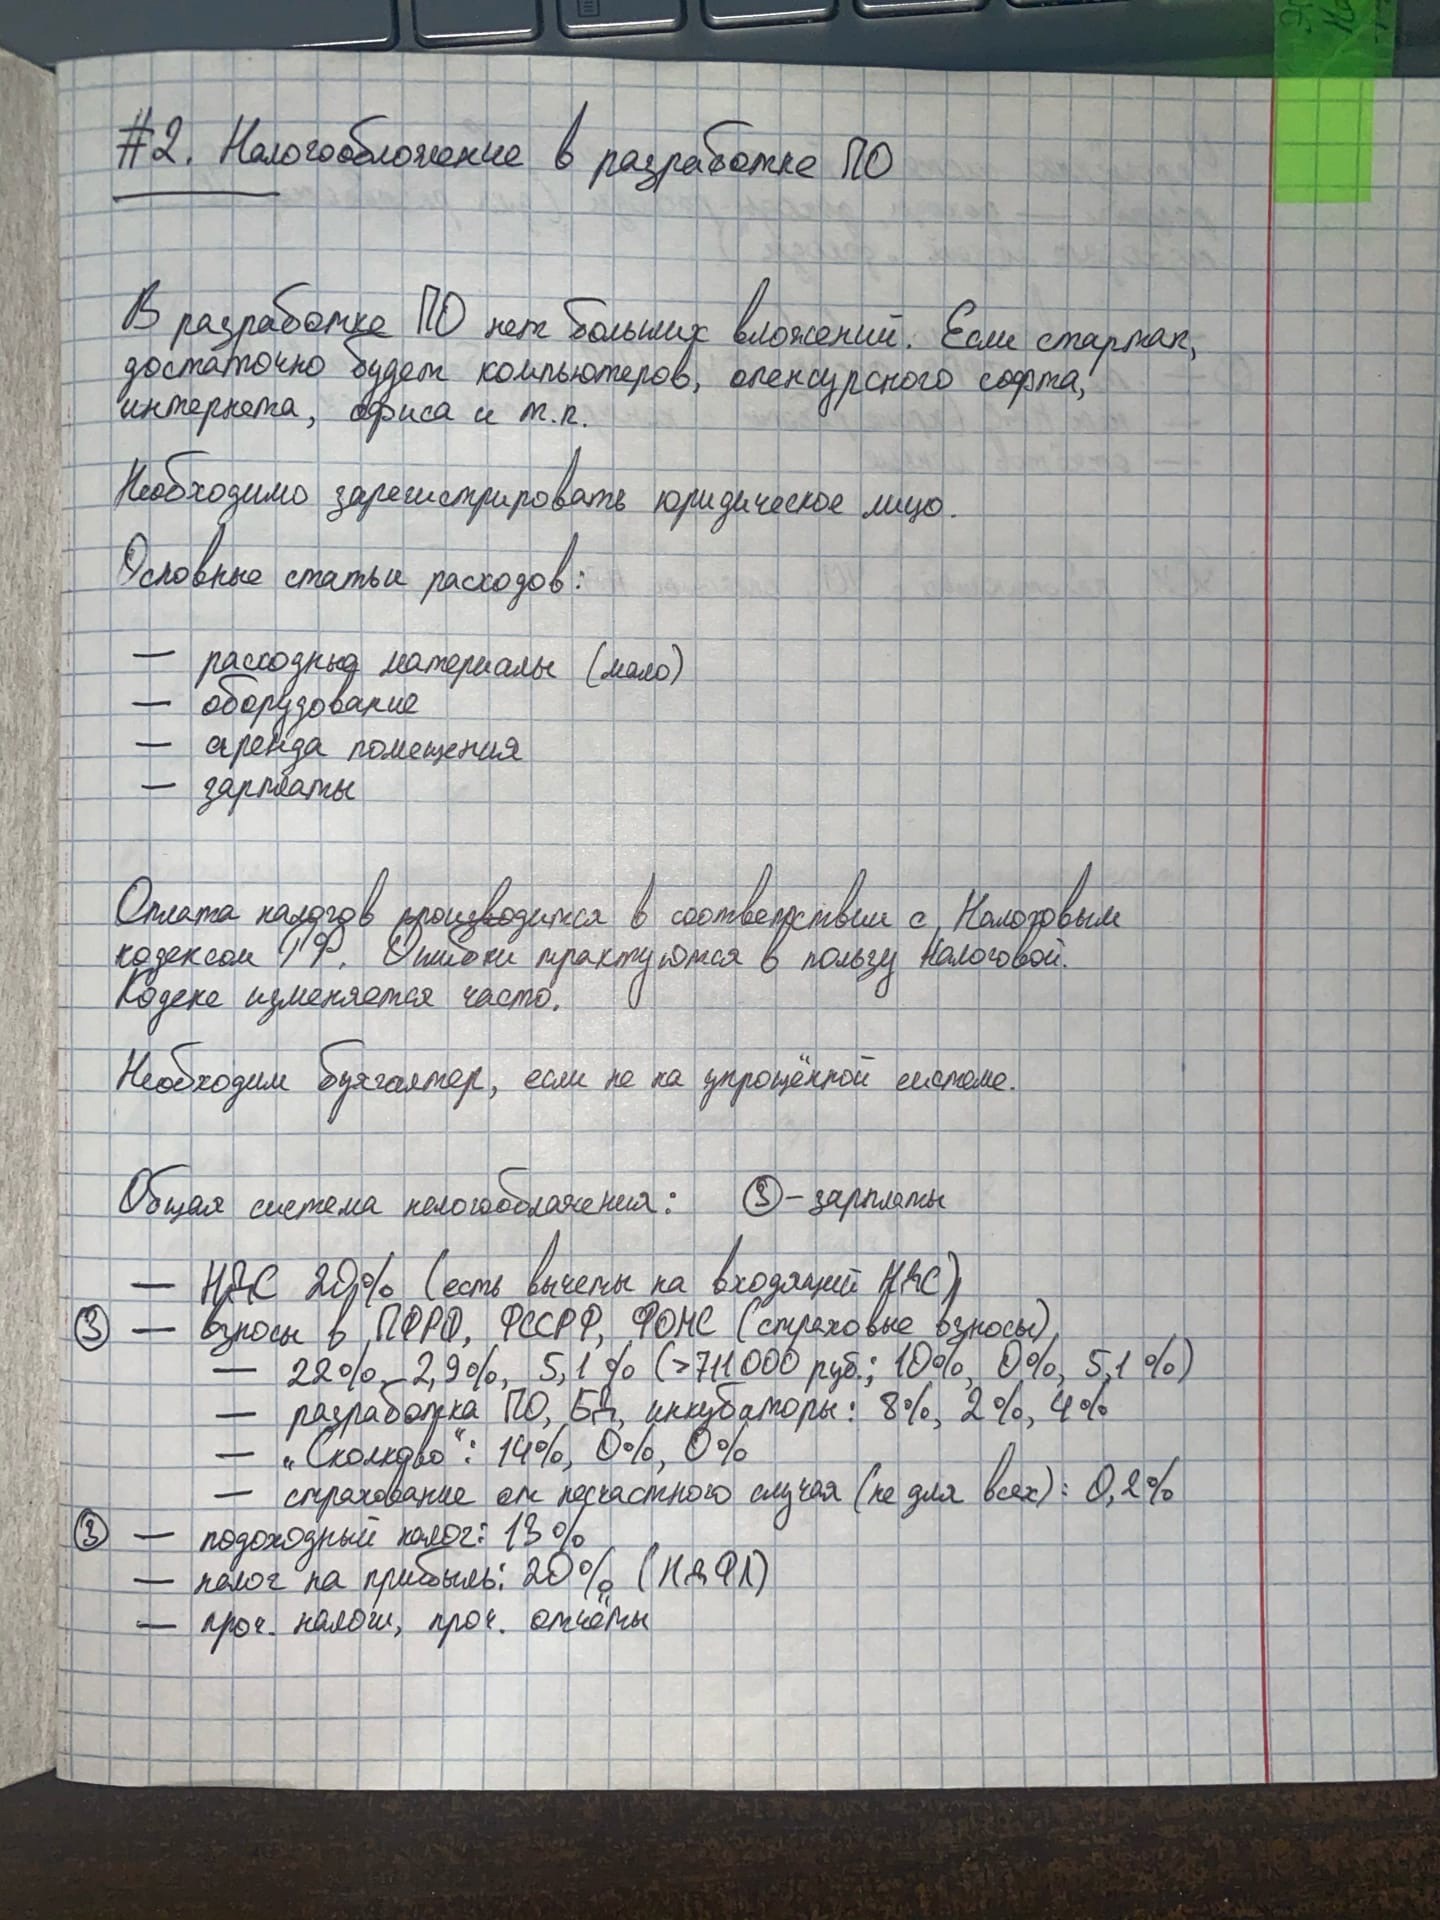 #2. Налогообложение в разработке ПО
В разработке ПО нет больших вложений. Если стартап,
достаточно будет компьютеров, опенсурсного софта,
интернета, офиса и т.п.
Необходимо зарегистрировать юридическое лицо.
Основные статьи расходов:
— расходные материалы (мало)
— оборудование
— аренда помещения
— зарплаты
Оплата налогов производится в соответствии с Налоговым
кодексом РФ. Ошибки трактуются в пользу Налоговой.
Кодекс изменяется часто.
Необходим бухгалтер, если не на упрощённой системе.
Общая система налогообложения: З – зарплаты
— НДС 20% (есть вычеты на входящий НДС)
З — взносы в ПФРФ, ФССРФ, ФОМС (страховые взносы)
— 22%, 2,9%, 5,1% (>711000 руб.; 10%, 0%, 5,1%)
— разработка ПО, БД, инкубаторы: 8%, 2%, 4%
— „Сколково“: 14%, 0%, 0%
— страхование от несчастного случая (не для всех): 0,2%
З — подоходный налог: 13%
— налог на прибыль: 20% (НДФЛ)
— проч. налоги, проч. отчёты